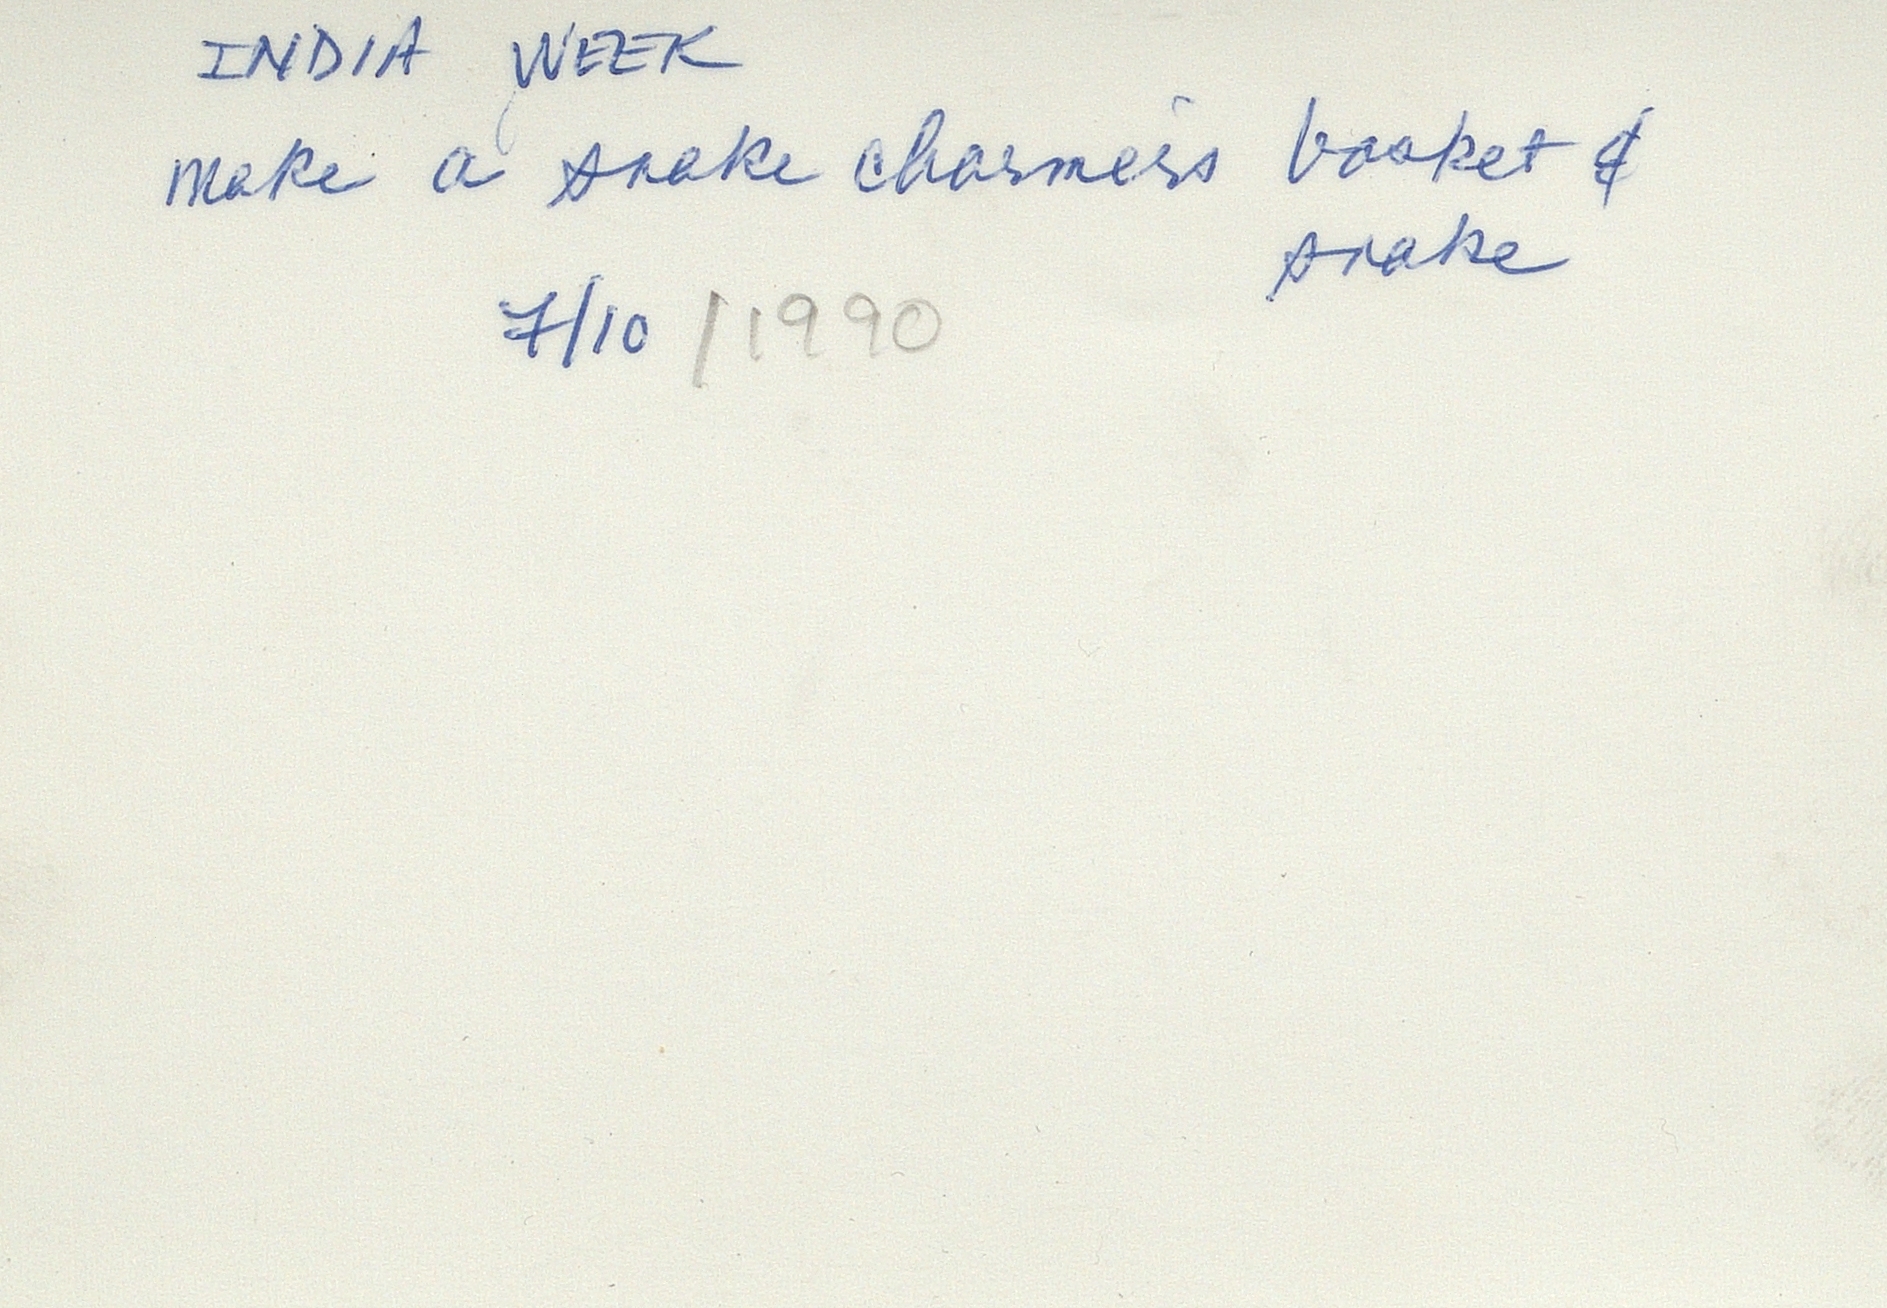 INDIA WEEK
make a snake charmer's basket &
snake
7/10/1990